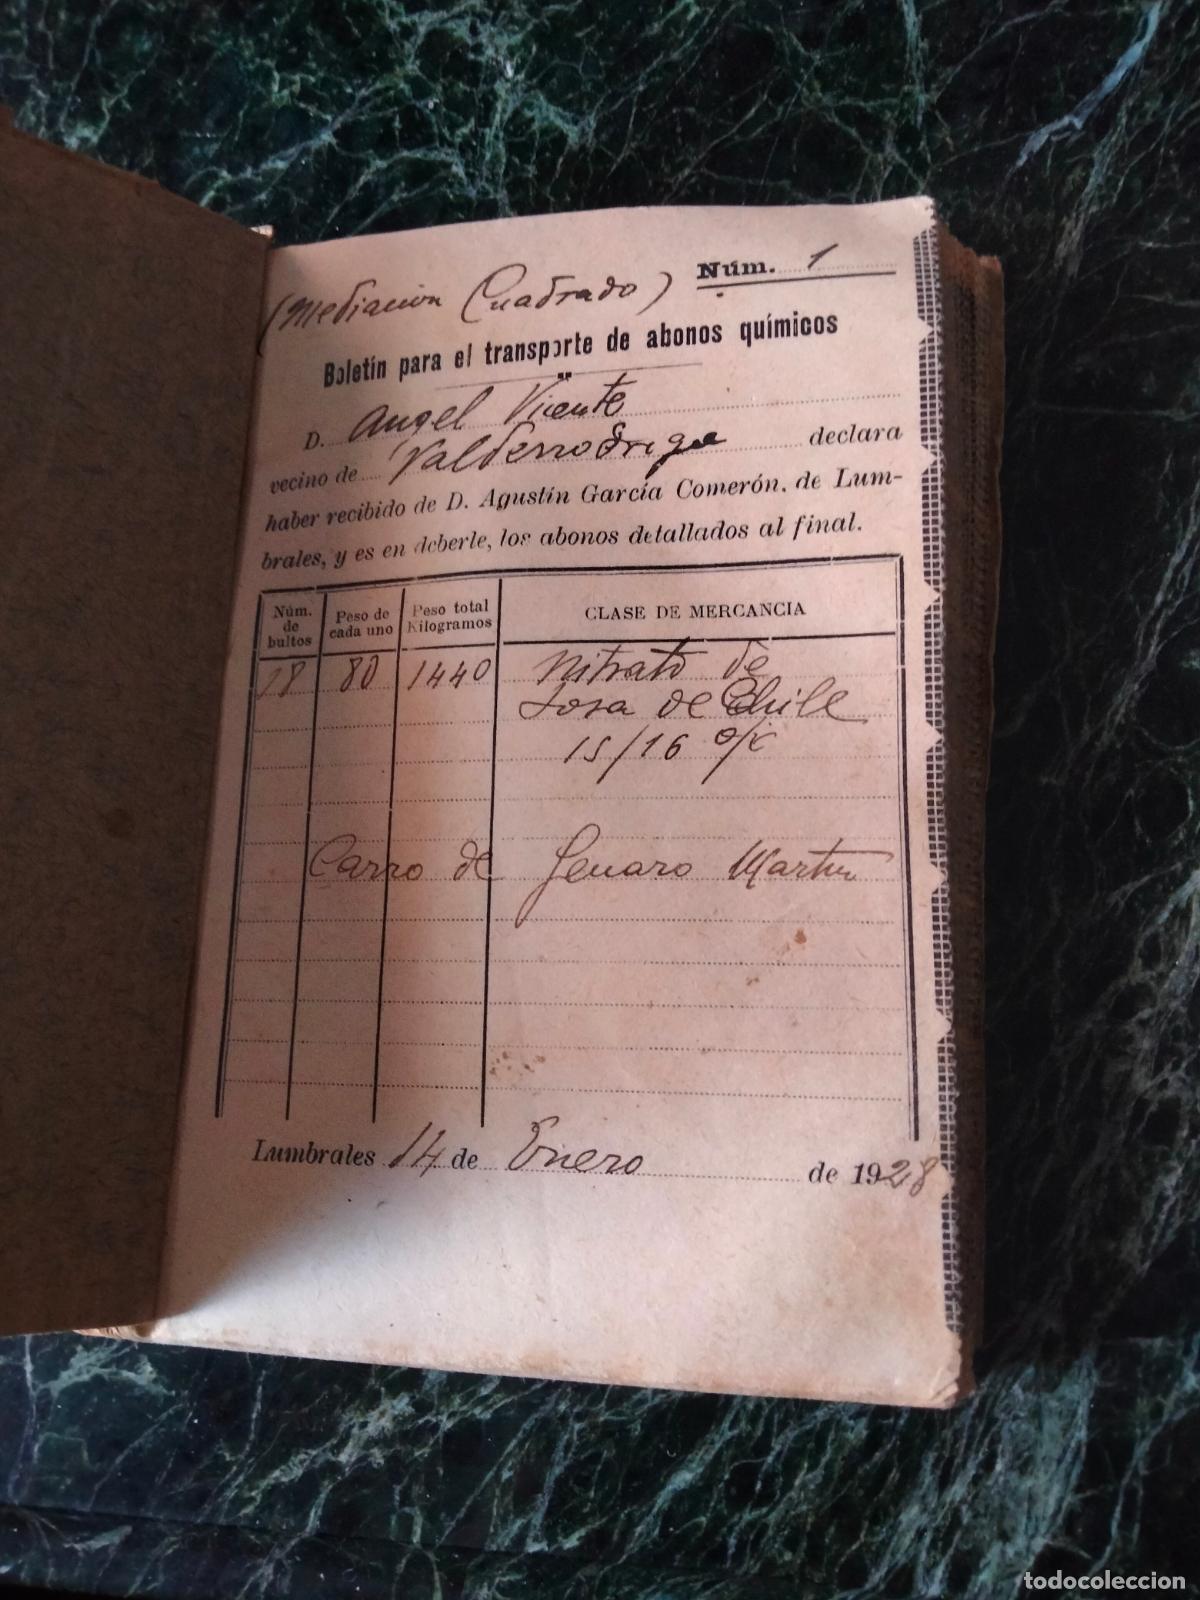 Núm. 1
(Mediacion Cuadrado)
Boletín para el transporte de abonos químicos
D. Angel Vicente
vecino de Valderrodrigo declara
haber recibido de D. Agustín García Comerón, de Lum-
brales, y es en deberle, los abonos detallados al final.
Núm. de bultos Peso de cada uno Peso total Kilogramos CLASE DE MERCANCIA
18 80 1440 Nitrato de
Sosa de Chile
15/16 %
Carro de Genaro Martin
Lumbrales 14 de Enero de 1928
todocoleccion